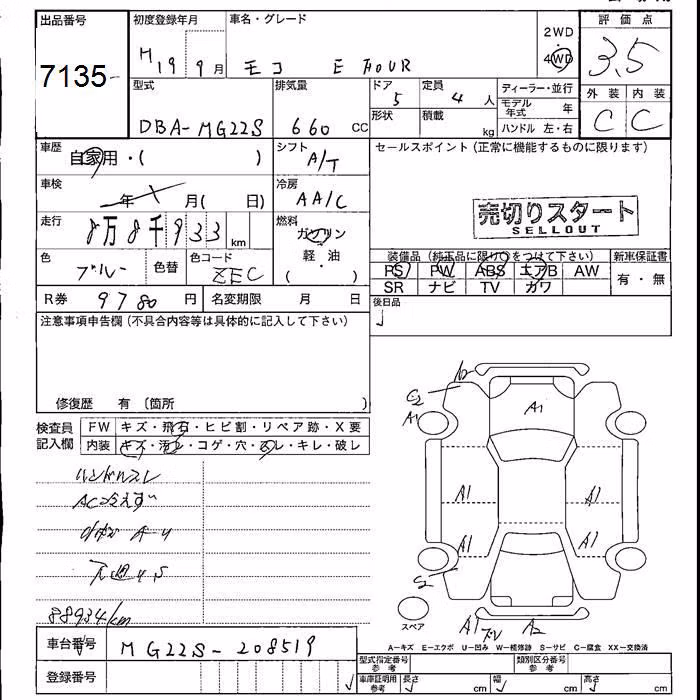 出品番号 初度登録年月 車名・グレード 2WD・4WD 評価点
7135 H 19 9月 モコ E FOUR 3.5
型式 排気量 ドア 定員 ディーラー・並行 外装 内装
DBA-MG22S 660 CC 5 4人 モデル年式 年 C C
形状 積載 kg ハンドル 左・右
車歴 自家用・( ) シフト A/T セールスポイント (正常に機能するものに限ります)
車検 年 月( 日) 冷房 AA/C
売切りスタート
SELLOUT
走行 8万8千933 km 燃料 ガソリン・軽油 ( )
装備品 (純正品に限り〇をつけて下さい) 新車保証書
色 ブルー 色替 色コード ZEC PS PW ABS エアB AW 有・無
SR ナビ TV カワ
R券 9780円 名変期限 月 日 後日品
注意事項申告欄 (不具合内容等は具体的に記入して下さい)
修復歴 有 〔箇所 )
検査員記入欄 FW キズ・飛石・ヒビ割・リペア跡・X要
内装 キズ・汚レ・コゲ・穴・スレ・キレ・破レ
ハンドルスレ
AC冷えず
88934/km
A2
C2
A1
A1
A1
A1
A1
A1
A1
A2
スペア
A-キズ E-エクボ U-凹み W-補修跡 S-サビ C-腐食 XX-交換済
車台番号 MG22S-208519
型式指定番号 参考 類別区分番号 参考
登録番号 車庫証明用 参考 長さ cm 幅 cm 高さ cm